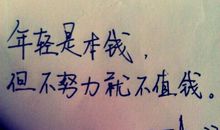 年轻是本钱，
但不努力就不值钱。